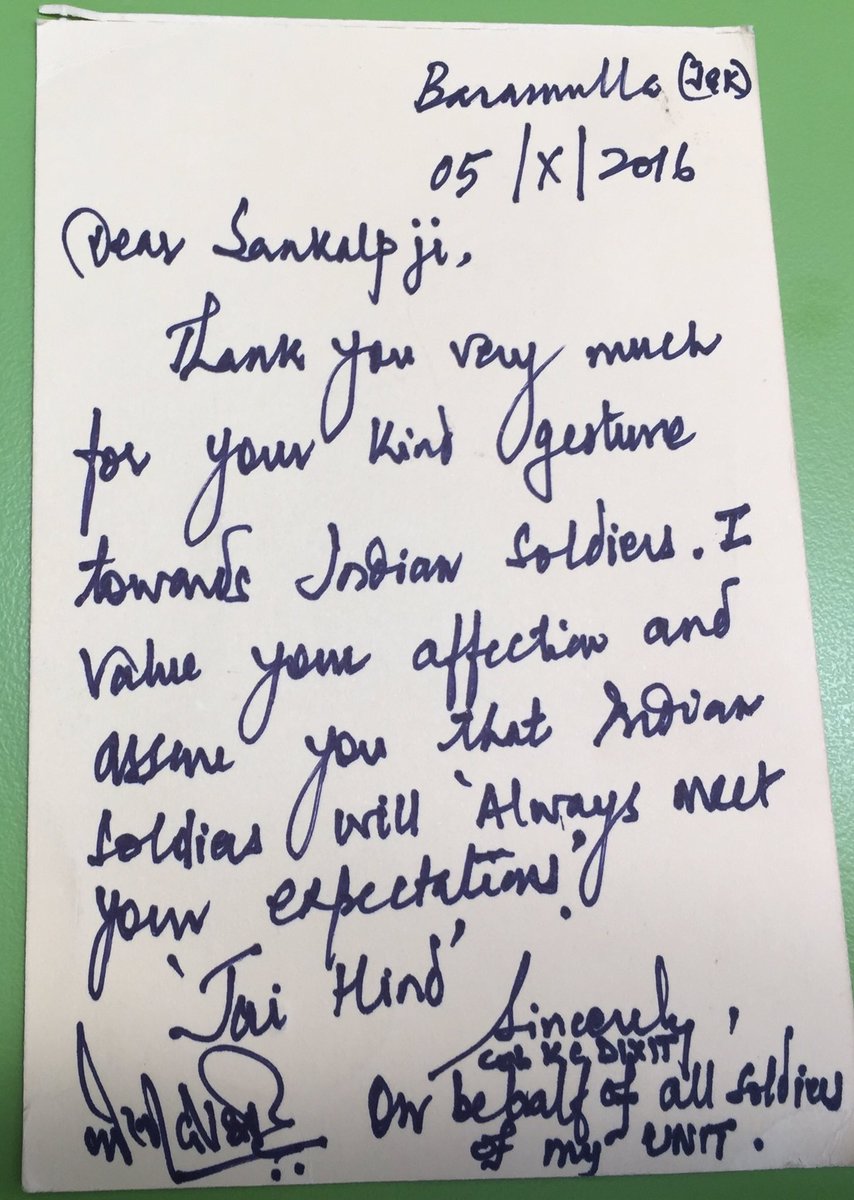 Baramulla (J&K)
05/X/2016
Dear Sankalp ji,
Thank you very much
for your kind gesture
towards Indian Soldiers. I
Value your affection and
assure you that Indian
Soldiers will 'Always meet
your expectations'.
'Jai Hind'
Sincerely,
Col K C DIXIT
On behalf of all Soldiers
of my UNIT.